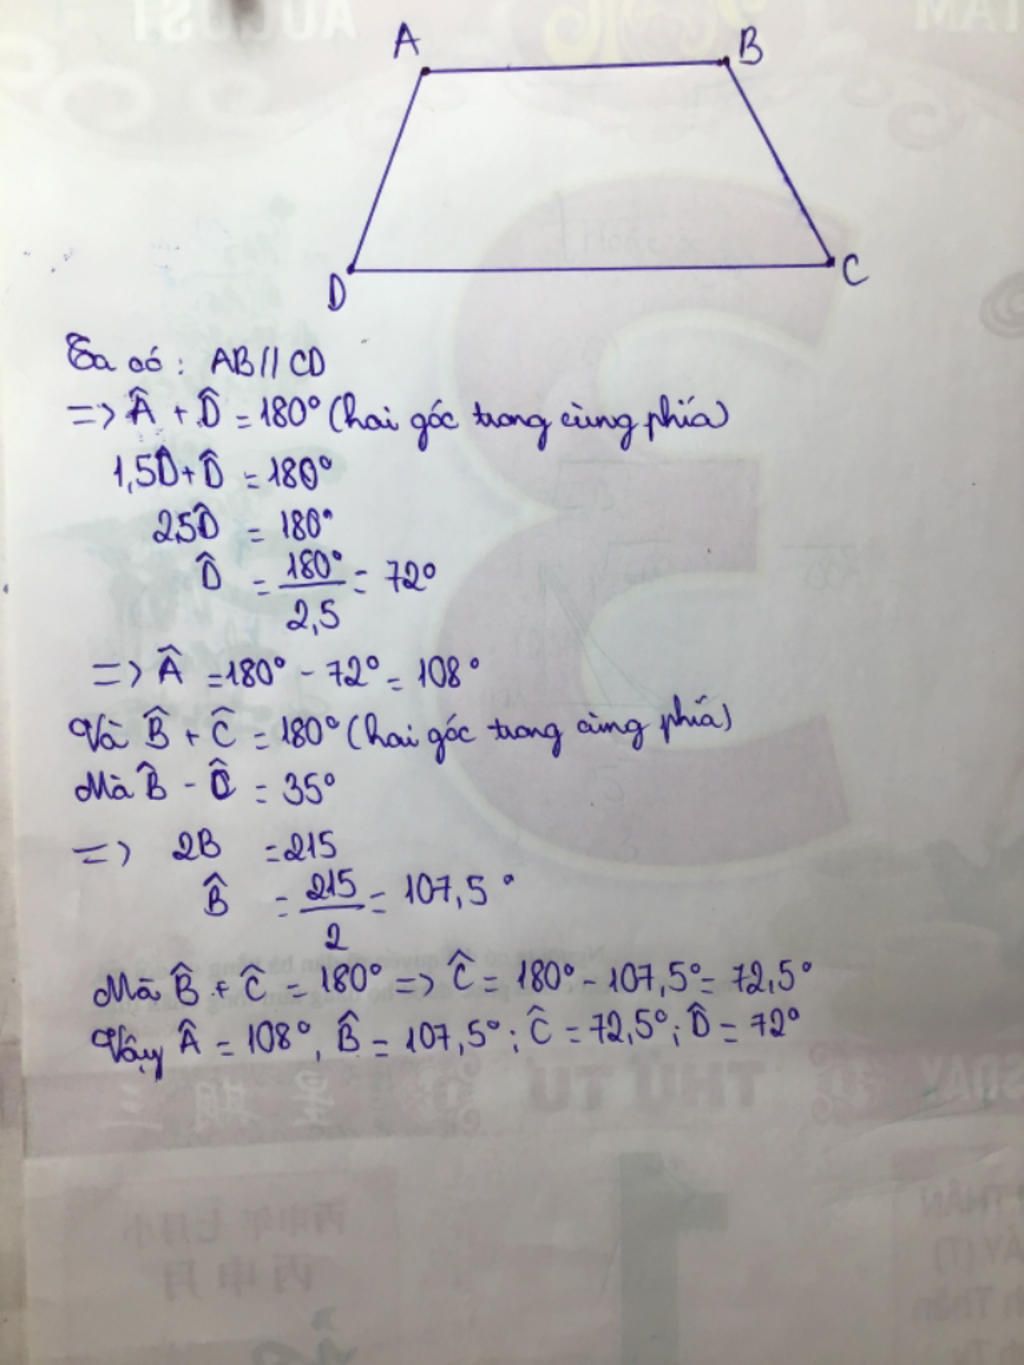 AUGUST
TÁM
A
B
D
C
Ta có: AB // CD
=> Â + D̂ = 180° (hai góc trong cùng phía)
1,5D̂ + D̂ = 180°
25D̂ = 180°
D̂ = 180°/2,5 = 72°
=> Â = 180° - 72° = 108°
Và B̂ + Ĉ = 180° (hai góc trong cùng phía)
Mà B̂ - Ĉ = 35°
=> 2B = 215
B̂ = 215/2 = 107,5°
Mà B̂ + Ĉ = 180° => Ĉ = 180° - 107,5° = 72,5°
Vậy Â = 108°, B̂ = 107,5°; Ĉ = 72,5°; D̂ = 72°
THỨ TƯ